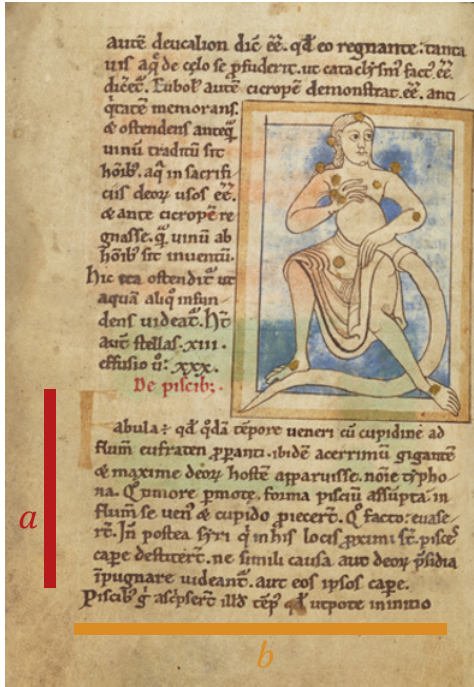 autē deucalion dic̄ eē. qd̄ eo regnante: tanta
uis aq̄ de celo se ꝓfuderit. ut cataclysm̄ fact' eē
dicēt. Eubol' autē cicropē demonstrat. eē. anti
q̄tatē memorans.
& ostendens anteq̄
uinū traditū sit
hōib'. aq̄ in sacrifi
ciis deoꝝ usos eē.
& ante cicropē re
gnasse. q̄ uinū ab
hōib' sit inuentū.
hic ita ostendit' ut
aquā aliq̊ infun
dens uideat'. Ht̄
aut̄ stellas. xiii.
effusio ū: xxx.
De piscib;.
Fabula: qd̄ q̊dā tēpore ueneri cū cupidine ad
flum̄ eufraten ꝓpanti. ibidē acerrimū gigantē
& maxime deoꝝ hostē apparuisse. noīe typho
na. Q̊ timore ꝑmote. forma pisciū assūpta. in
flum̄ se uen' & cupido ꝓiecert̄. Q̊ facto: euase
rt̄. Jn̄ postea syri q̄ in his locis ꝓximi st̄. pisce'
cape destitert̄. ne simili causa aut deoꝝ p̄sidia
īpugnare uideant'. aut eos ipsos cape.
Piscib' g̊ asc̄psert̄ illd̄ tēp' qd̄ utpote in initio
a
b